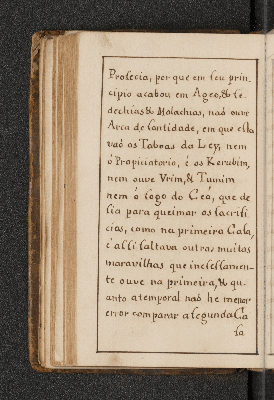 Profecia, porque em seu prin-
cipio acabou em Ageo, & Se-
dechias & Malachias, naõ ouve
Arca de Santidade, em que està
vaõ os Taboas da Ley, nem
ò Propiciatorio, é os Kerubim,
nem ouve Vrim, & Tumim
nem ò fogo do Ceó, que de
sia para queimar os sacrifi
cios, como na primeira Caza,
é alli faltava outras muitas
maravilhas que incessamen-
te ouve na primeira, & qu-
anto atemporal naõ he menor
error comparar a segunda Ca
sa